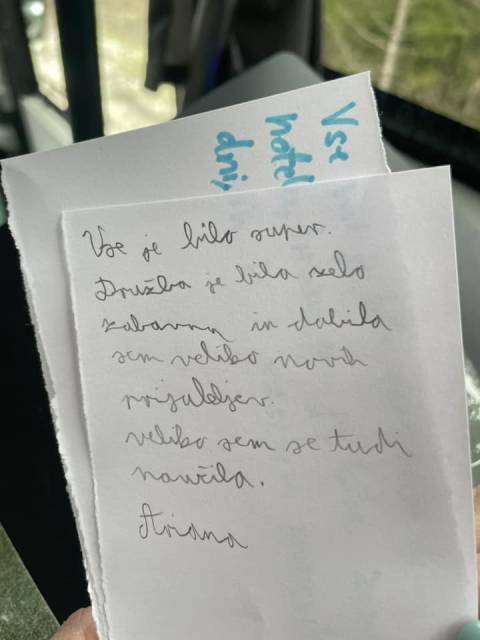 Vse
hotel
dni,
Vse je bilo super.
Družba je bila zelo
zabavna in dobila
sem veliko novih
prijateljev.
veliko sem se tudi
naučila.
Ariana